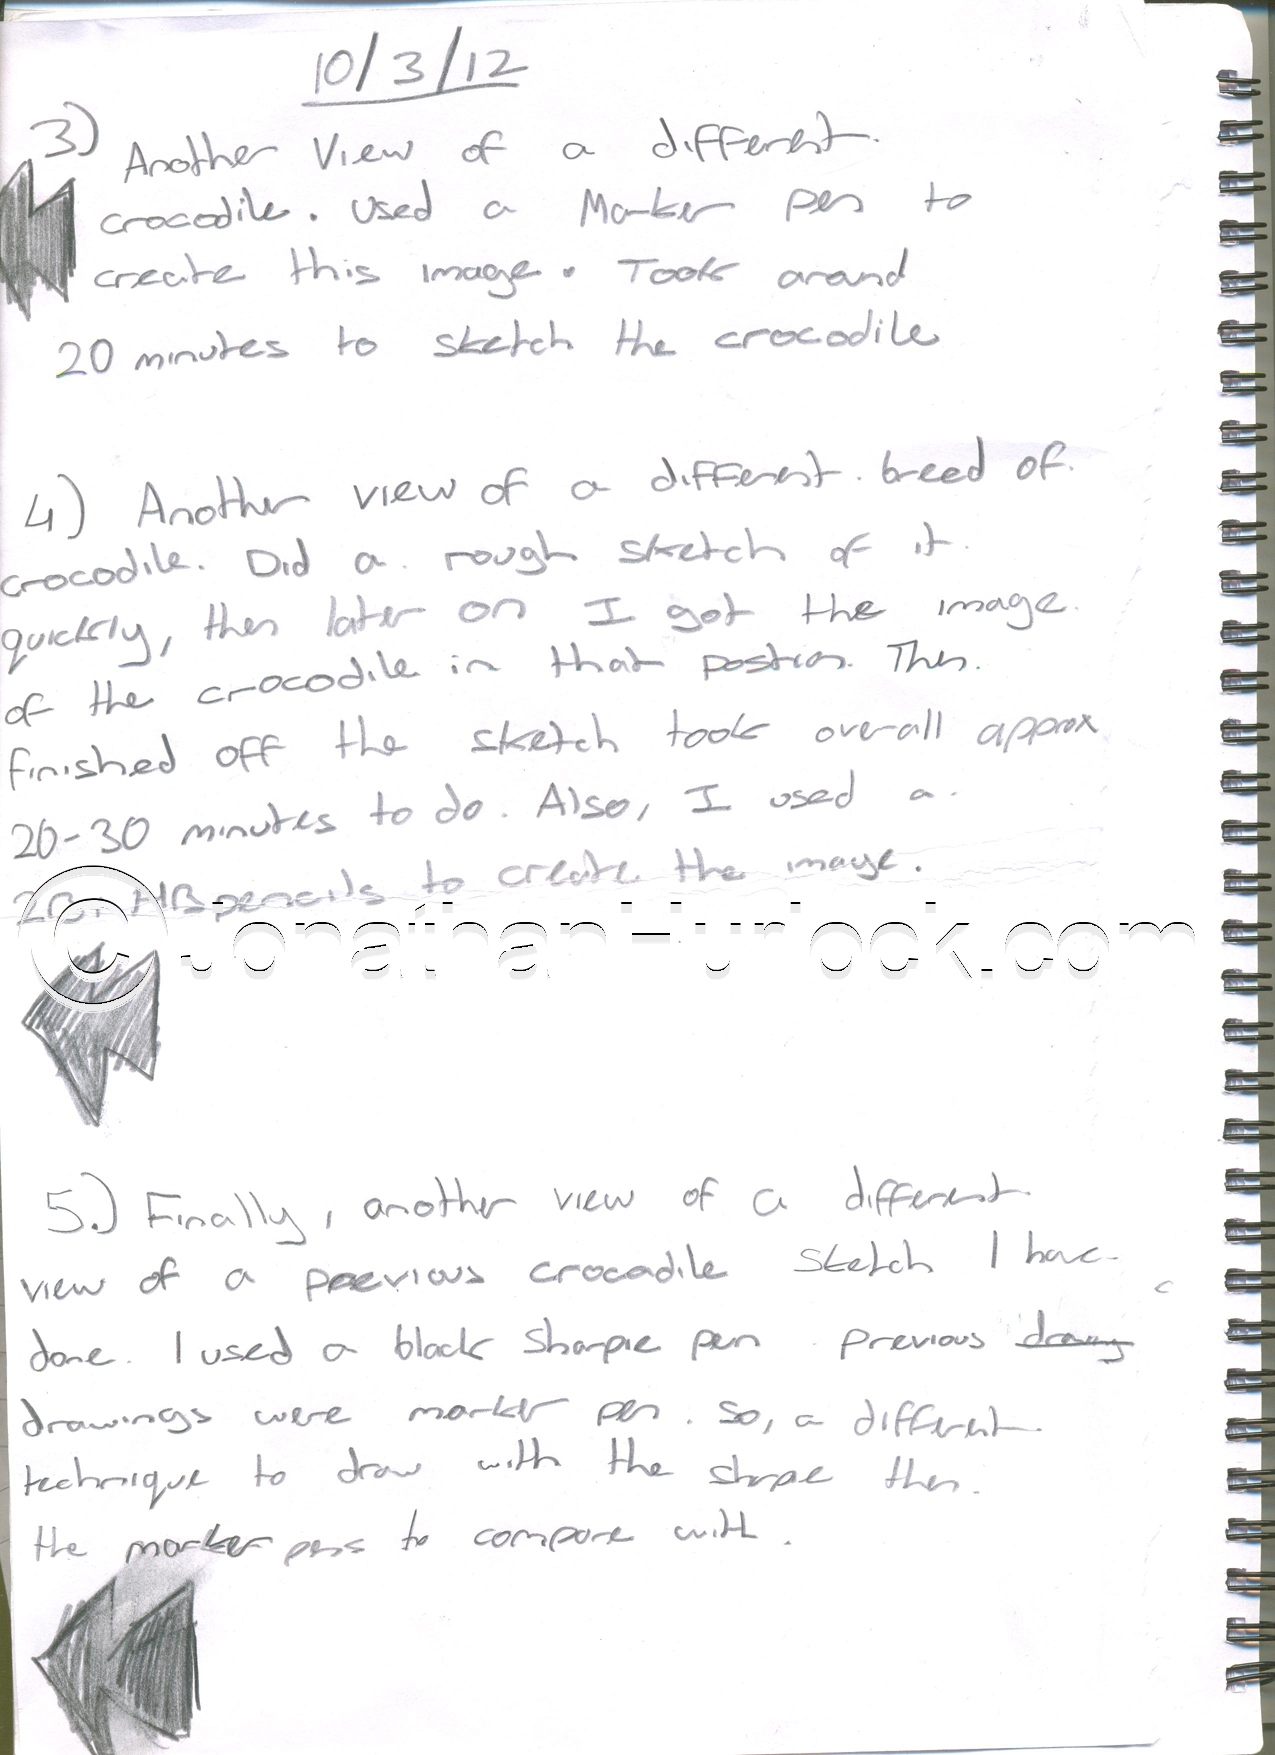 10/3/12
3) Another View of a different.
crocodile. Used a Marker pen to
create this image. Took around
20 minutes to sketch the crocodile
4) Another view of a different. breed of.
crocodile. Did a. rough sketch of it.
quickly, then later on I got the image.
of the crocodile in that postion. Then.
finished off the sketch took overall approx
20-30 minutes to do. Also, I used a.
2B, HB pencils to create the image.
© Jonathan Hurlock.com
5.) Finally, another view of a different.
view of a previous crocadile sketch I have.
done. I used a black sharpie pen. previous
drawings were marker pen. So, a different.
technique to draw with the then.
the marker pens to compare with.